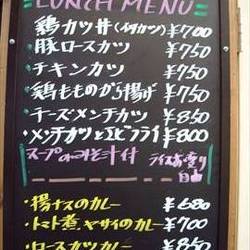 LUNCH MENU
鶏カツ丼(イタリカツ) ¥700
豚ロースカツ ¥750
チキンカツ ¥750
鶏もものから揚げ ¥750
チーズメンチカツ ¥850
メンチカツとエビフライ ¥800
スープのみそ汁付 ライスお替り
自由
・揚ナスのカレー ¥680
・トマト煮ヤサイのカレー ¥700
・ロースカツカレー ¥850